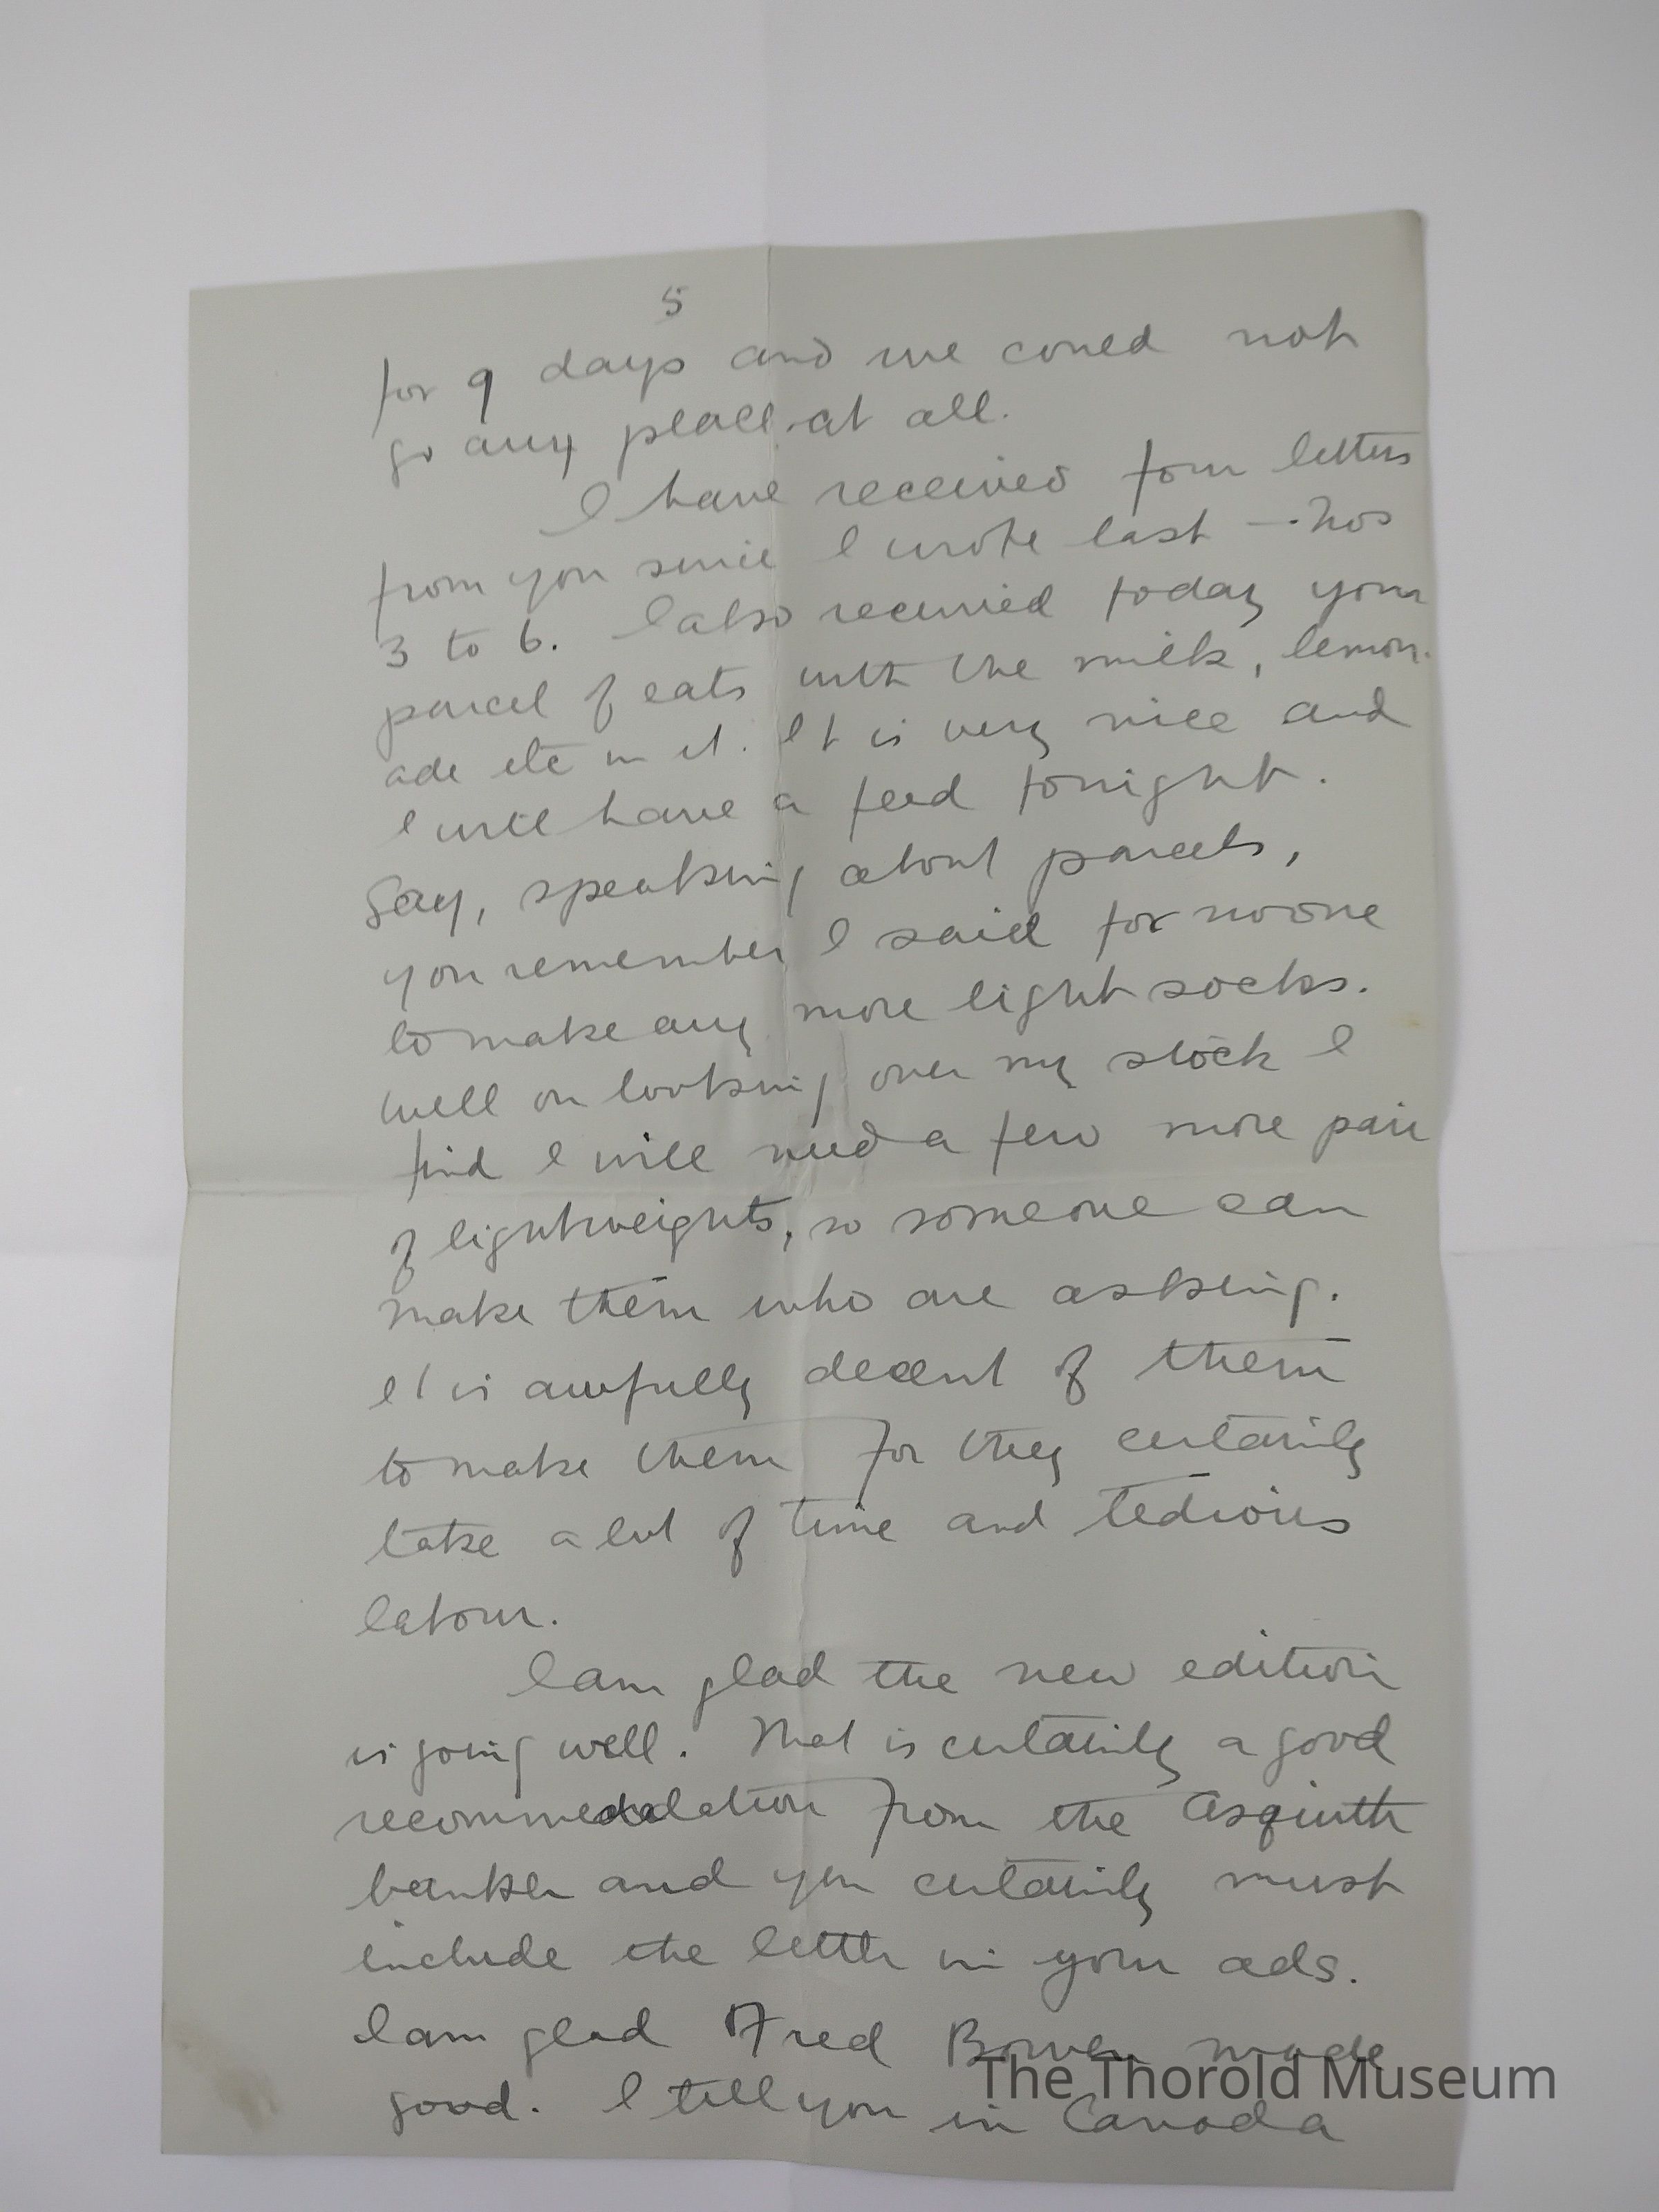 5
for 9 days and we could not
go any place at all.
I have received four letters
from you since I wrote last - nos
3 to 6. I also received today your
parcel of eats with the milk, lemon-
ade etc in it. It is very nice and
I will have a feed tonight.
Say, speaking about parcels,
you remember I said for no one
to make any more light socks.
Well on looking over my stock I
find I will need a few more pair
of lightweights, so someone can
make them who are asking.
It is awfully decent of them
to make them for they certainly
take a lot of time and tedious
labour.
I am glad the new edition
is going well. That is certainly a good
recommedalation from the Asquith
banker and you certainly must
include the letter in your ads.
I am glad Fred Bowen made
good. I tell you in Canada
The Thorold Museum